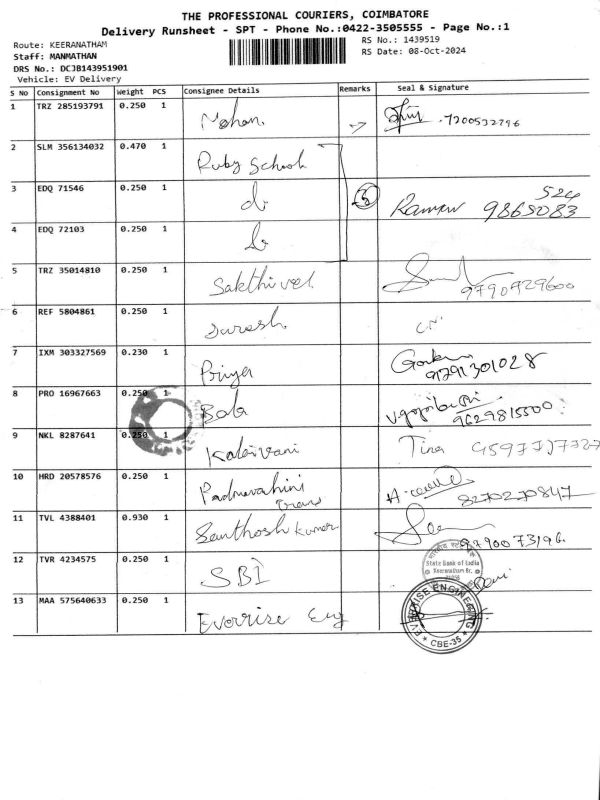 THE PROFESSIONAL COURIERS, COIMBATORE
Delivery Runsheet - SPT - Phone No.:0422-3505555 - Page No.:1
Route: KEERANATHAM
RS No.: 1439519
Staff: MANMATHAN
RS Date: 08-Oct-2024
DRS No.: DCJB143951901
Vehicle: EV Delivery
S No Consignment No Weight PCS Consignee Details Remarks Seal & Signature
1 TRZ 285193791 0.250 1 Mohan. 7200532796
2 SLM 356134032 0.470 1 Ruby School
3 EDQ 71546 0.250 1 Raman 9865083
524
4 EDQ 72103 0.250 1
5 TRZ 35014810 0.250 1 Sakthivel 9790929600
6 REF 5804861 0.250 1 Suresh.
7 IXM 303327569 0.230 1 Priya 9791301028
8 PRO 16967663 0.250 1 Bala 9629815500
9 NKL 8287641 0.250 1 Kalaivani Tina
10 HRD 20578576 0.250 1 Padmavahini Trans 8270270847
11 TVL 4388401 0.930 1 Santhosh kumar 9790073196.
12 TVR 4234575 0.250 1 SBI
State Bank of India
Keeranatham Br.
Devi
13 MAA 575640633 0.250 1 Everrise Eng
EVERRISE ENGINEERING
CBE-35